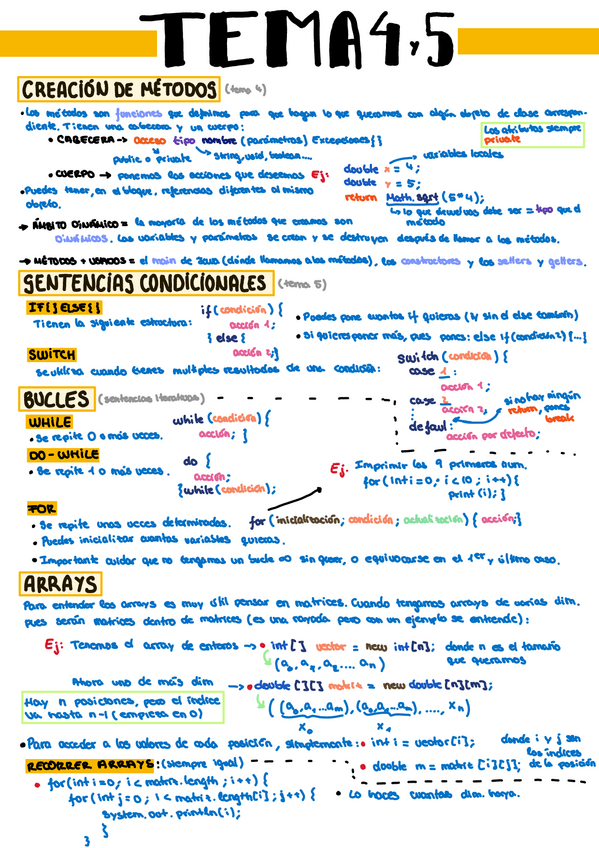 TEMA 4 y 5
CREACIÓN DE MÉTODOS (tema 4)
• Los métodos son funciones que definimos para que hagan lo que queramos con algún objeto de clase correspon-
diente. Tienen una cabecera y un cuerpo:
• CABECERA → acceso tipo nombre (parámetros) Excepciones{}
Los atributos siempre
private
public o private
String, void, boolean....
variables locales
• CUERPO → ponemos las acciones que deseamos Ej:
double x = 4;
double y = 5;
return Math.sqrt (5*4);
• Puedes tener, en el bloque, referencias diferentes al mismo
objeto.
lo que devuelvas debe ser = tipo que el
método
→ ÁMBITO DINÁMICO = la mayoría de los métodos que creamos son
DINÁMICOS. Las variables y parámetros se crean y se destruyen después de llamar a los métodos.
→ MÉTODOS + USADOS = el main de Java (dónde llamamos a los métodos), los constructores y los setters y getters.
SENTENCIAS CONDICIONALES (tema 5)
IF{} ELSE{}
Tienen la siguiente estructura:
if (condición) {
acción 1;
} else {
acción 2;}
• Puedes pone cuantos if quieras (y sin el else también)
• Si quieres poner más, pues pones: else if (condición 2) {...}
SWITCH
Se utiliza cuando tienes multiples resultados de una condición:
switch (condición) {
case 1 :
acción 1;
case 2
: acción 2;
default:
acción por defecto;
si no hay ningún
return, pones
break
BUCLES (sentencias iterativas)
WHILE
• Se repite 0 o más veces.
while (condición) {
acción; }
DO-WHILE
• Se repite 1 o más veces.
do {
acción;
}while (condición);
Ej. Imprimir los 9 primeros num.
for (int i=0; i<10; i++){
print (i); }
FOR
• Se repite unas veces determinadas.
for (inicialización; condición; actualización) { acción;}
• Puedes inicializar cuantas variables quieras.
• Importante cuidar que no tengamos un bucle ∞ sin querer, o equivocarse en el 1er y último caso.
ARRAYS
Para entender los arrays es muy útil pensar en matrices. Cuando tengamos arrays de varias dim.
pues serán matrices dentro de matrices (es una rayada pero con un ejemplo se entiende):
Ej: Tenemos el array de enteros → • int[] vector = new int[n]; donde n es el tamaño
que queramos
(a0, a1, a2 .... an)
Ahora uno de más dim → • double [][] matriz = new double [n][m];
Hay n posiciones, pero el índice
va hasta n-1 (empieza en 0)
((a0, a1 ... am), (a0, a1 ... am), ...., xn)
x0 x1
• Para acceder a los valores de cada posición, simplemente: • int i = vector[i];
• double m = matriz [i][j];
donde i y j son
los índices
de la posición
RECORRER ARRAYS: (siempre igual)
• for (int i=0; i < matriz.length; i++) {
for (int j=0; i < matriz.length[i]; j++) {
System.out.println(i);
}
}
• Lo haces cuantas dim. haya.